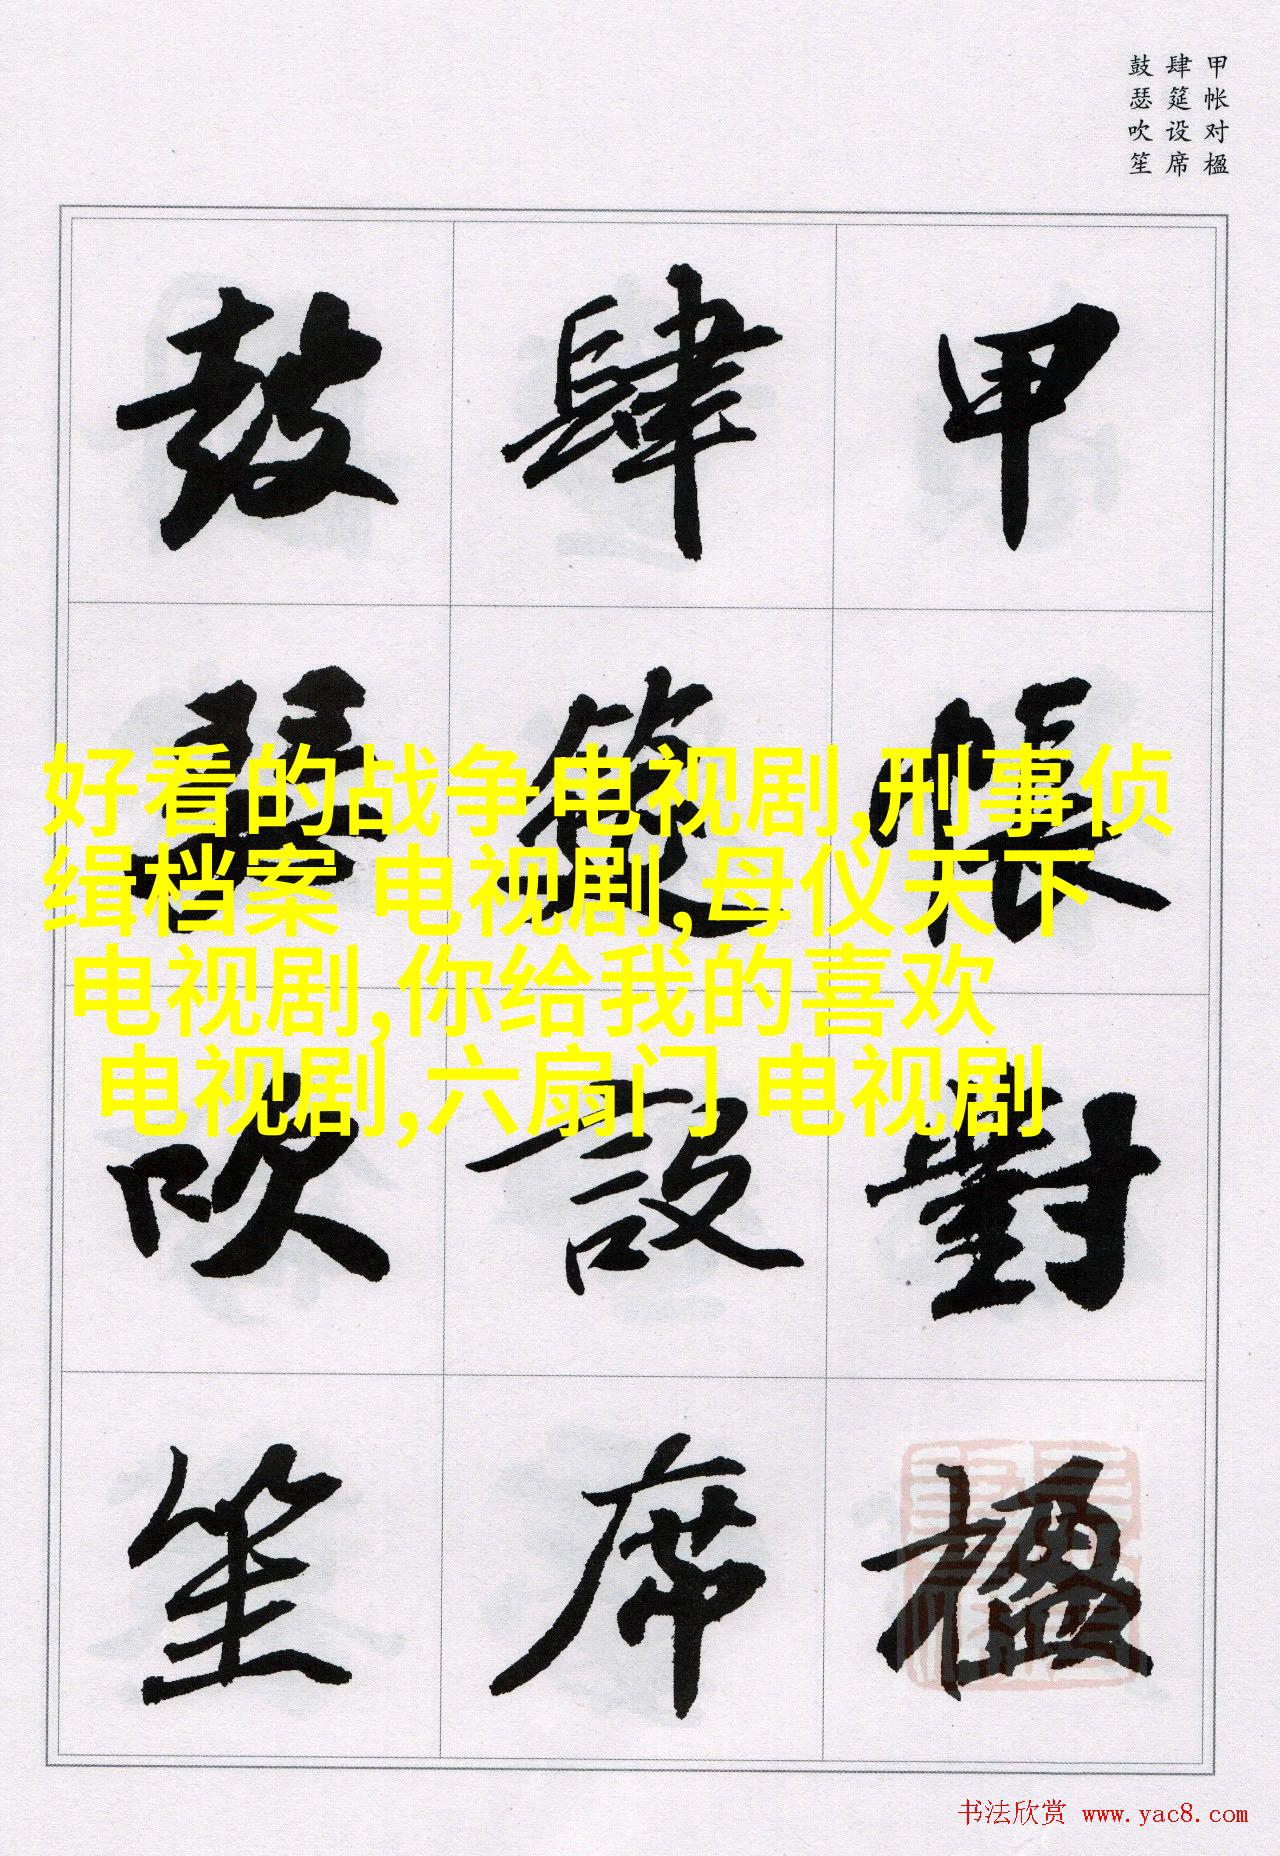 甲帐对楹
肆筵设席
鼓瑟吹笙
甲帳對楹
肆筵設席
鼓瑟吹笙
好看的战争电视剧,刑事侦
缉档案 电视剧,母仪天下
电视剧,你给我的喜欢
电视剧,六扇门 电视剧
书法欣赏 www.yac8.com